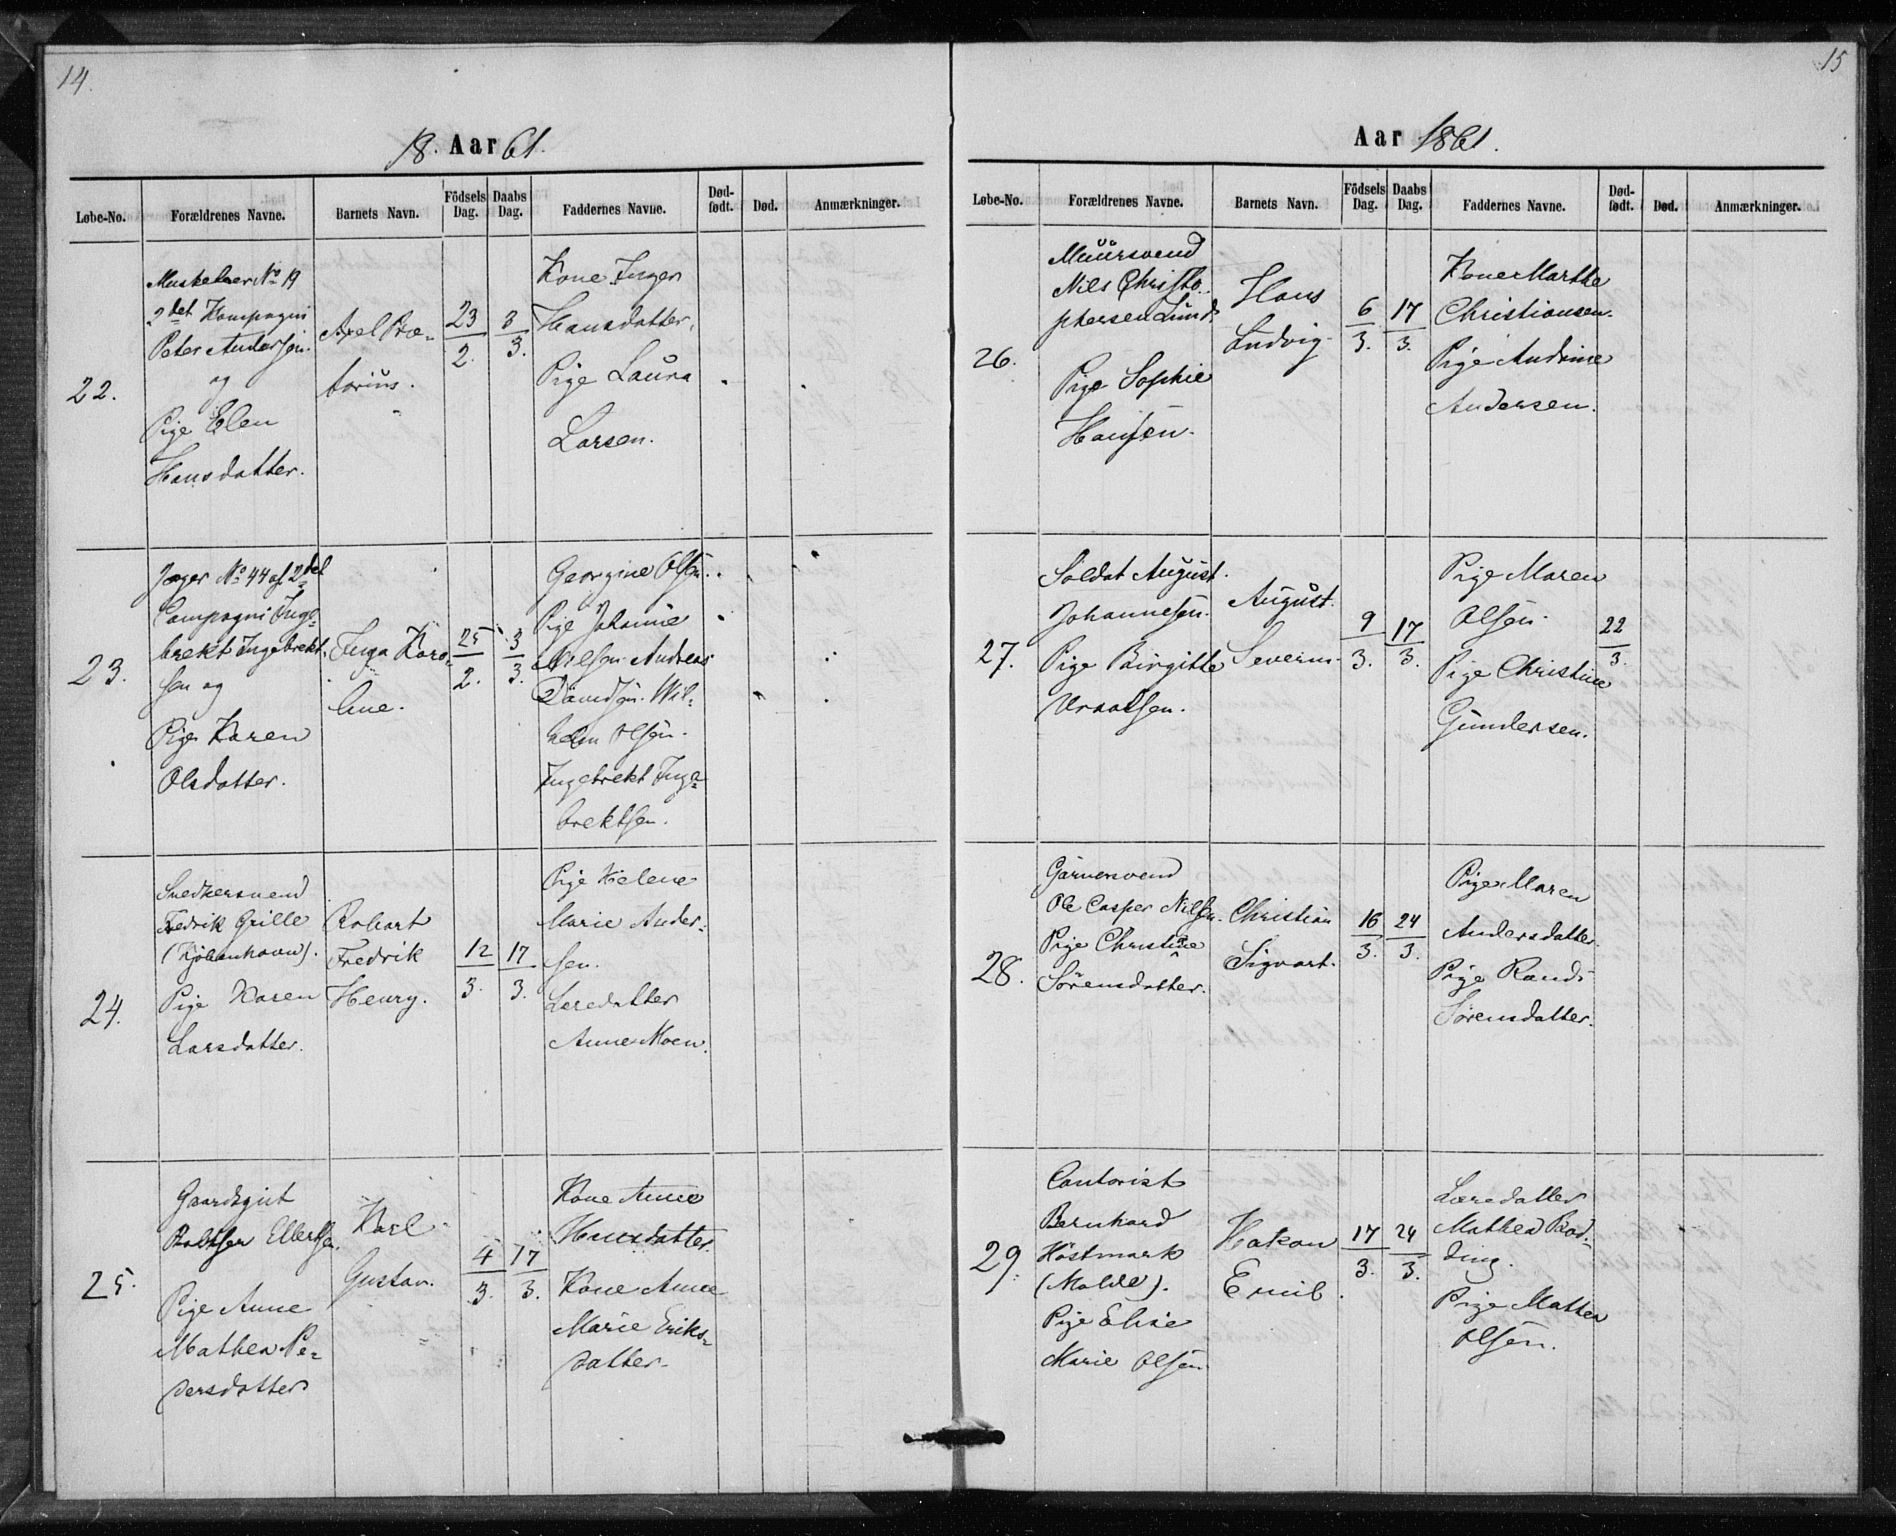 14.
18. Aar 61.
Løbe-No. Forældrenes Navne. Barnets Navn. Födsels Dag. Daabs Dag. Faddernes Navne. Død-født. Død. Anmærkninger.
22.
Muskeleer No 19
2det Kompagni
Peter Andersen
og
Pige Elen
Hansdatter.
Axel Præ-
torius.
23
2.
3
3.
Kone Inger
Hansdatter,
Pige Laura
Larsen.
23.
Jæger No 44 af 2det
Compagni Inge-
brekt Ingebrekt-
sen og
Pige Karen
Olsdatter.
Inga Karo-
line.
25
2.
3
3.
Georgine Olsen.
Pige Johanne
Nilsen Andreas
Davidsen. Wil-
helm Olsen.
Ingebrekt Inge-
brektsen.
24.
Snedkersvend
Fredrik Grille
(Kjöbenhavn).
Pige Karen
Larsdatter.
Robert
Fredrik
Henry.
12
3.
17
3.
Pige Helene
Marie Ander-
sen.
Leredatter
Anne Moen.
25.
Gaardsgut
Ellertsen.
Pige Anne
Mathea Pe-
dersdatter
Karl
Gustav.
4
3.
17
3.
Kone Anne
Hansdatter
Kone Anne
Marie Eriks-
datter.
15
Aar 1861.
Løbe-No. Forældrenes Navne. Barnets Navn. Födsels Dag. Daabs Dag. Faddernes Navne. Død-født. Død. Anmærkninger.
26.
Muursvend
Nils Christo-
phersen Lund.
Pige Sophie
Hansen.
Hans
Ludvig.
6
3.
17
3.
Kone Marthe
Christiansen.
Pige Andrine
Andersen.
27.
Soldat August
Johannesen.
Pige Birgitte
Vraalsen.
August
Severin.
9
3.
17
3.
Pige Maren
Olsen.
Pige Christine
Gundersen.
22
3.
28.
Garversvend
Ole Casper Nilsen.
Pige Christine
Sörensdatter.
Christian
Sigvart.
16
3.
24
3.
Pige Maren
Andersdatter.
Pige Randi
Sörensdatter.
29.
Contorist
Bernhard
Höstmark
(Molde).
Pige Elise
Marie Olsen
Hakon
Emil.
17
3.
24
3.
Læredatter
Mathea Rod-
ding.
Pige Mathea
Olsen.